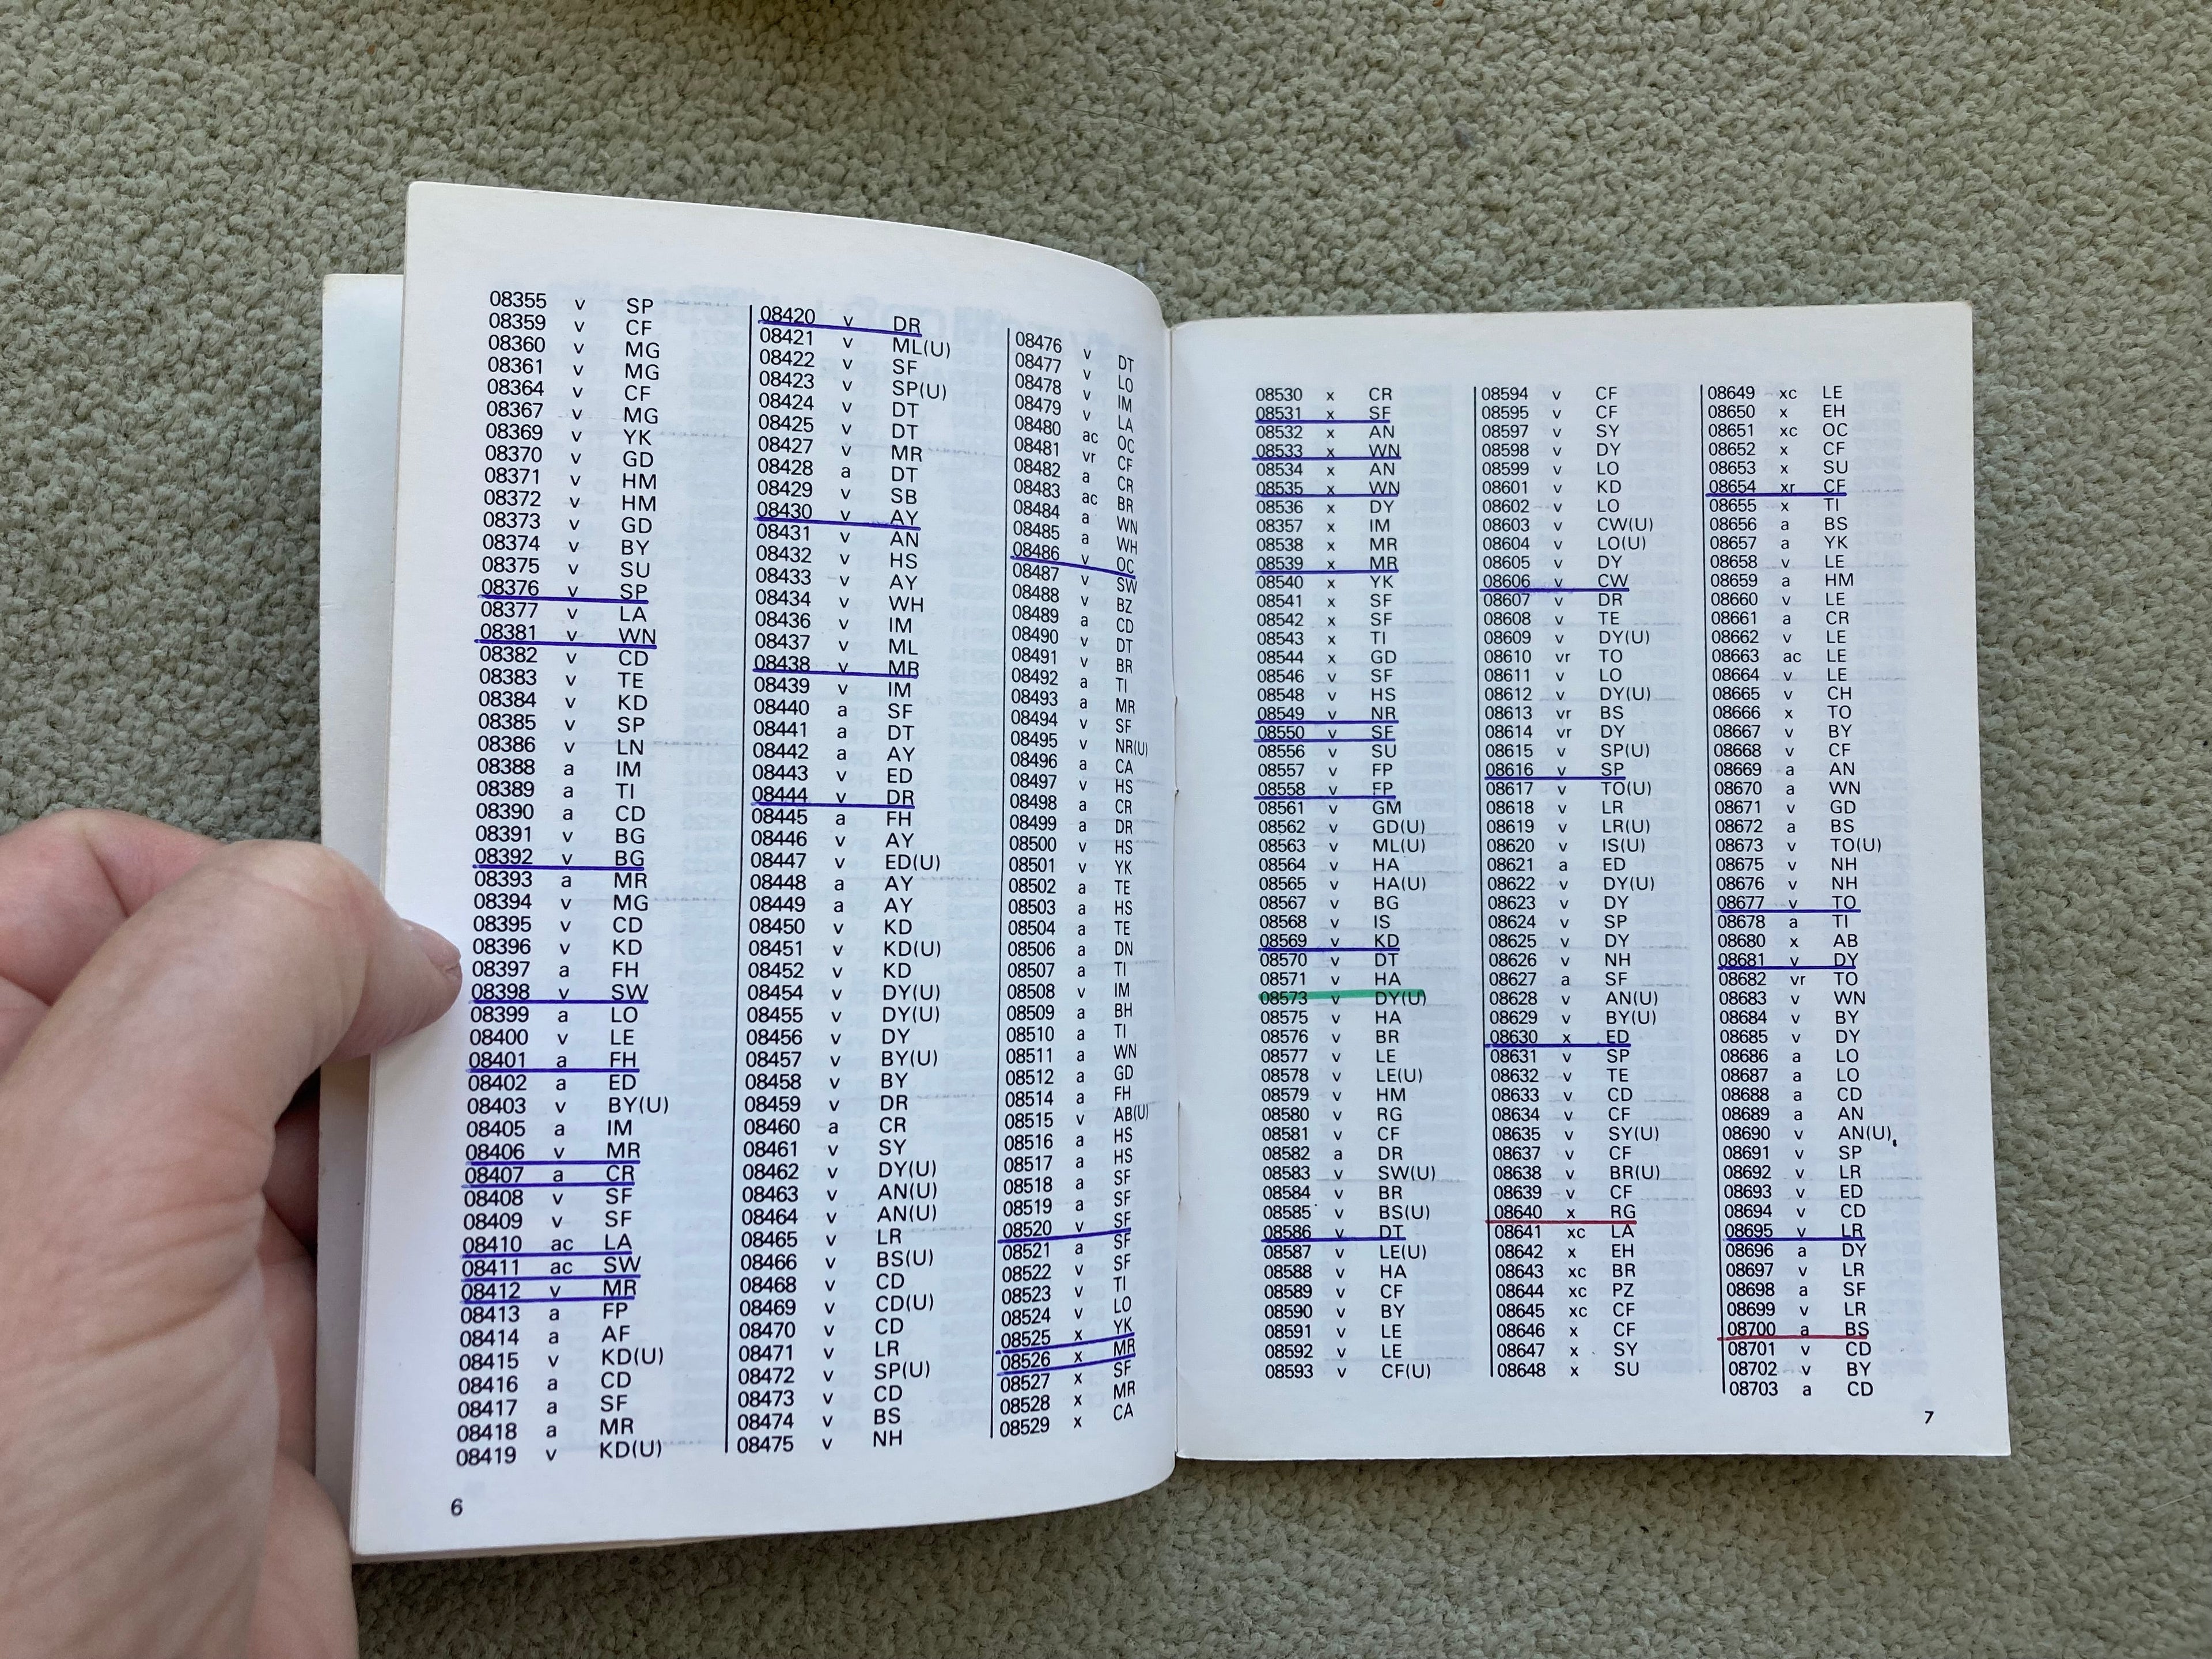 08355 v SP
08359 v CF
08360 v MG
08361 v MG
08364 v CF
08367 v MG
08369 v YK
08370 v GD
08371 v HM
08372 v HM
08373 v GD
08374 v BY
08375 v SU
08376 v SP
08377 v LA
08381 v WN
08382 v CD
08383 v TE
08384 v KD
08385 v SP
08386 v LN
08388 a IM
08389 a TI
08390 a CD
08391 v BG
08392 v BG
08393 a MR
08394 v MG
08395 v CD
08396 v KD
08397 a FH
08398 v SW
08399 a LO
08400 v LE
08401 a FH
08402 a ED
08403 v BY(U)
08405 a IM
08406 v MR
08407 a CR
08408 v SF
08409 v SF
08410 ac LA
08411 ac SW
08412 v MR
08413 a FP
08414 a AF
08415 v KD(U)
08416 a CD
08417 a SF
08418 a MR
08419 v KD(U)
08420 v DR
08421 v ML(U)
08422 v SF
08423 v SP(U)
08424 v DT
08425 v DT
08427 v MR
08428 a DT
08429 v SB
08430 v AY
08431 v AN
08432 v HS
08433 v AY
08434 v WH
08436 v IM
08437 v ML
08438 v MR
08439 v IM
08440 a SF
08441 a DT
08442 a AY
08443 v ED
08444 v DR
08445 a FH
08446 v AY
08447 v ED(U)
08448 a AY
08449 a AY
08450 v KD
08451 v KD(U)
08452 v KD
08454 v DY(U)
08455 v DY(U)
08456 v DY
08457 v BY(U)
08458 v BY
08459 v DR
08460 a CR
08461 v SY
08462 v DY(U)
08463 v AN(U)
08464 v AN(U)
08465 v LR
08466 v BS(U)
08468 v CD
08469 v CD(U)
08470 v CD
08471 v LR
08472 v SP(U)
08473 v CD
08474 v BS
08475 v NH
08476 v DT
08477 v LO
08478 v IM
08479 v LA
08480 ac OC
08481 vr CF
08482 a CR
08483 ac BR
08484 a WN
08485 a WH
08486 v OC
08487 v SW
08488 v BZ
08489 a CD
08490 v DT
08491 v BR
08492 a TI
08493 a MR
08494 v SF
08495 v NR(U)
08496 a CA
08497 v HS
08498 a CR
08499 a DR
08500 v HS
08501 v YK
08502 a TE
08503 a HS
08504 a TE
08506 a DN
08507 a TI
08508 v IM
08509 a BH
08510 a TI
08511 a WN
08512 a GD
08514 a FH
08515 v AB(U)
08516 a HS
08517 a HS
08518 a SF
08519 a SF
08520 v SF
08521 a SF
08522 v SF
08523 v TI
08524 v LO
08525 x YK
08526 x MR
08527 x SF
08528 x MR
08529 x CA
6
08530 x CR
08531 x SF
08532 x AN
08533 x WN
08534 x AN
08535 x WN
08536 x DY
08357 x IM
08538 x MR
08539 x MR
08540 x YK
08541 x SF
08542 x SF
08543 x TI
08544 x GD
08546 v SF
08548 v HS
08549 v NR
08550 v SF
08556 v SU
08557 v FP
08558 v FP
08561 v GM
08562 v GD(U)
08563 v ML(U)
08564 v HA
08565 v HA(U)
08567 v BG
08568 v IS
08569 v KD
08570 v DT
08571 v HA
08573 v DY(U)
08575 v HA
08576 v BR
08577 v LE
08578 v LE(U)
08579 v HM
08580 v RG
08581 v CF
08582 a DR
08583 v SW(U)
08584 v BR
08585 v BS(U)
08586 v DT
08587 v LE(U)
08588 v HA
08589 v CF
08590 v BY
08591 v LE
08592 v LE
08593 v CF(U)
08594 v CF
08595 v CF
08597 v SY
08598 v DY
08599 v LO
08601 v KD
08602 v LO
08603 v CW(U)
08604 v LO(U)
08605 v DY
08606 v CW
08607 v DR
08608 v TE
08609 v DY(U)
08610 vr TO
08611 v LO
08612 v DY(U)
08613 vr BS
08614 vr DY
08615 v SP(U)
08616 v SP
08617 v TO(U)
08618 v LR
08619 v LR(U)
08620 v IS(U)
08621 a ED
08622 v DY(U)
08623 v DY
08624 v SP
08625 v DY
08626 v NH
08627 a SF
08628 v AN(U)
08629 v BY(U)
08630 x ED
08631 v SP
08632 v TE
08633 v CD
08634 v CF
08635 v SY(U)
08637 v CF
08638 v BR(U)
08639 v CF
08640 x RG
08641 xc LA
08642 x EH
08643 xc BR
08644 xc PZ
08645 xc CF
08646 x CF
08647 x SY
08648 x SU
08649 xc LE
08650 x EH
08651 xc OC
08652 x CF
08653 x SU
08654 xr CF
08655 x TI
08656 a BS
08657 a YK
08658 v LE
08659 a HM
08660 v LE
08661 a CR
08662 v LE
08663 ac LE
08664 v LE
08665 v CH
08666 x TO
08667 v BY
08668 v CF
08669 a AN
08670 a WN
08671 v GD
08672 a BS
08673 v TO(U)
08675 v NH
08676 v NH
08677 v TO
08678 a TI
08680 x AB
08681 v DY
08682 vr TO
08683 v WN
08684 v BY
08685 v DY
08686 a LO
08687 a LO
08688 a CD
08689 a AN
08690 v AN(U)
08691 v SP
08692 v LR
08693 v ED
08694 v CD
08695 v LR
08696 a DY
08697 v LR
08698 a SF
08699 v LR
08700 a BS
08701 v CD
08702 v BY
08703 a CD
7